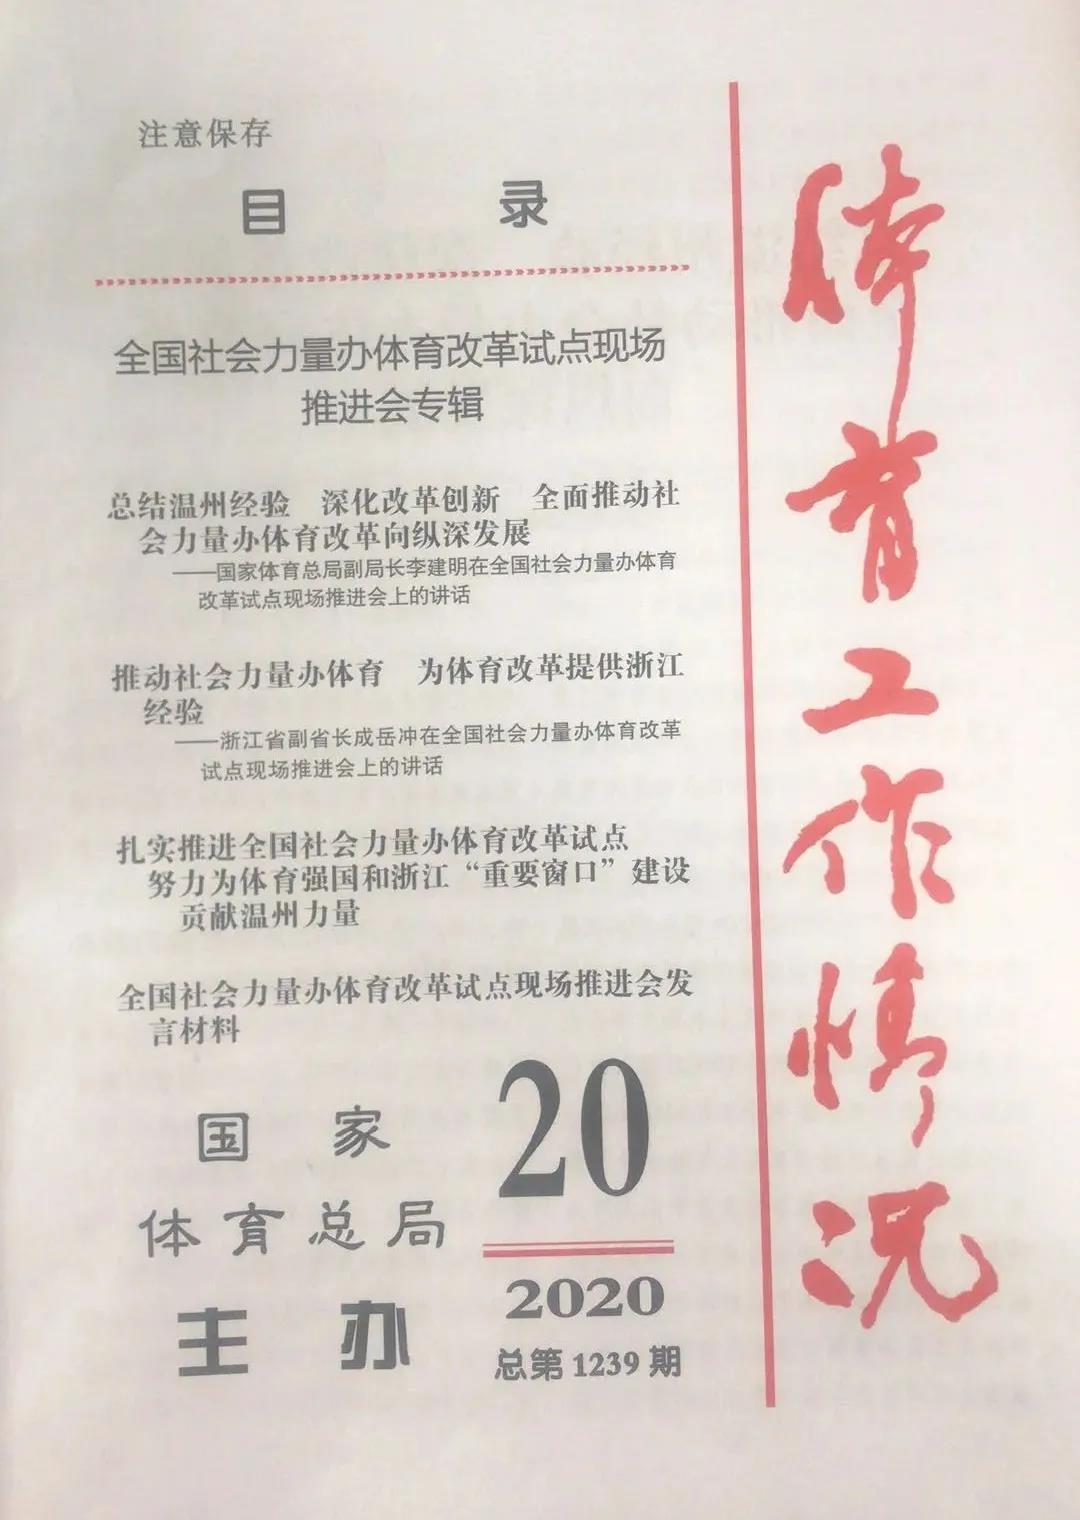 注意保存
目 录
全国社会力量办体育改革试点现场
推进会专辑
总结温州经验 深化改革创新 全面推动社
会力量办体育改革向纵深发展
——国家体育总局副局长李建明在全国社会力量办体育
改革试点现场推进会上的讲话
推动社会力量办体育 为体育改革提供浙江
经验
——浙江省副省长成岳冲在全国社会力量办体育改革
试点现场推进会上的讲话
扎实推进全国社会力量办体育改革试点
努力为体育强国和浙江“重要窗口”建设
贡献温州力量
全国社会力量办体育改革试点现场推进会发
言材料
国家
体育总局
主办
20
2020
总第1239期
体育工作情况